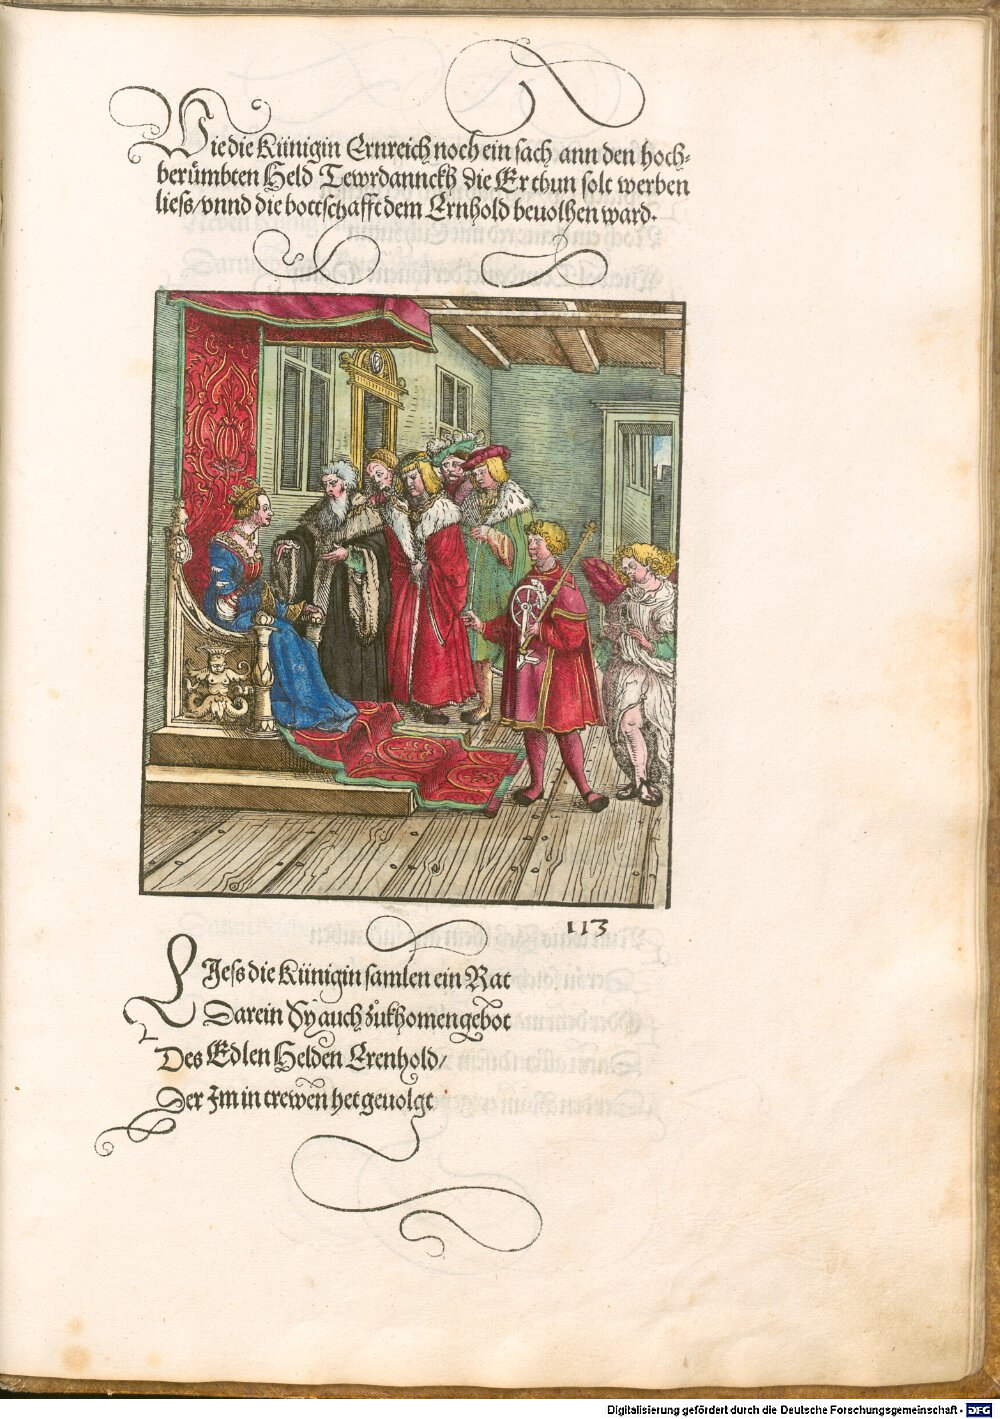 Wie die Künigin Ernreich noch ein sach ann den hoch⸗
berůmbten Held Tewrdannckh die Er thun solt werben
liess/vnnd die bottschafft dem Ernhold beuolhen ward.
113
LIess die Künigin samlen ein Rat
Darein Sy auch zůkhomen gebot
Des Edlen Helden Erenhold/
Der Im in trewen het geuolgt
Digitalisierung gefördert durch die Deutsche Forschungsgemeinschaft - DFG